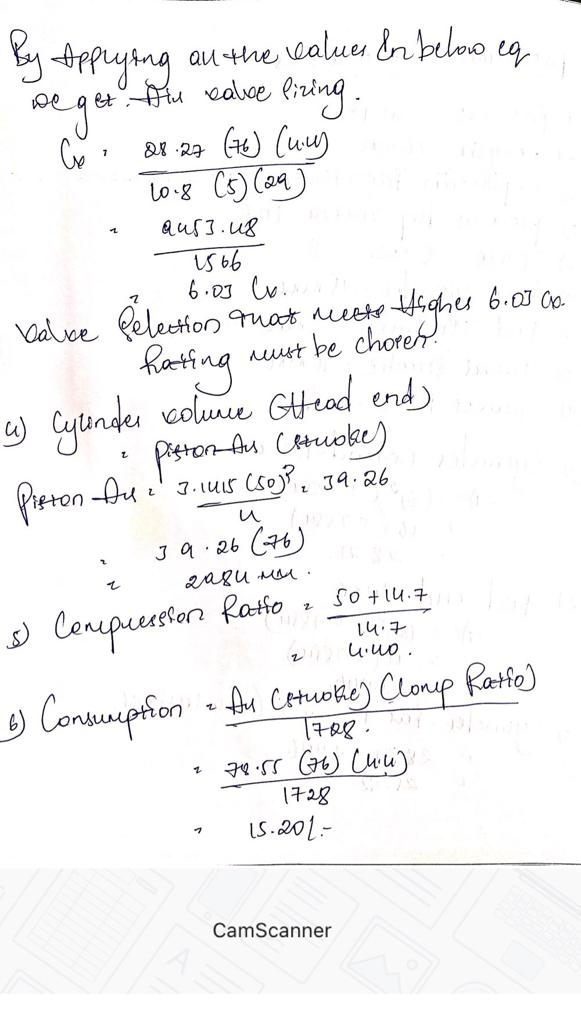 By Applying all the values In below eq
we get. Air valve sizing.
Cv = 28.27 (76) (4.4)
10.8 (5) (29)
= 9453.48
1566
= 6.03 Cv.
valve Selection that meets Higher 6.03 Cv.
Rating must be chosen.
4) Cylinder volume (Head end)
= Piston Au (stroke)
Piston Au = 3.1415 (50)² = 39.26
4
= 39.26 (76)
= 2984 mm.
5) Compression Ratio = 50 + 14.7
14.7
= 4.40.
6) Consumption = Au (stroke) (Comp Ratio)
1728.
= 78.55 (76) (4.4)
1728
= 15.20/.-
CamScanner